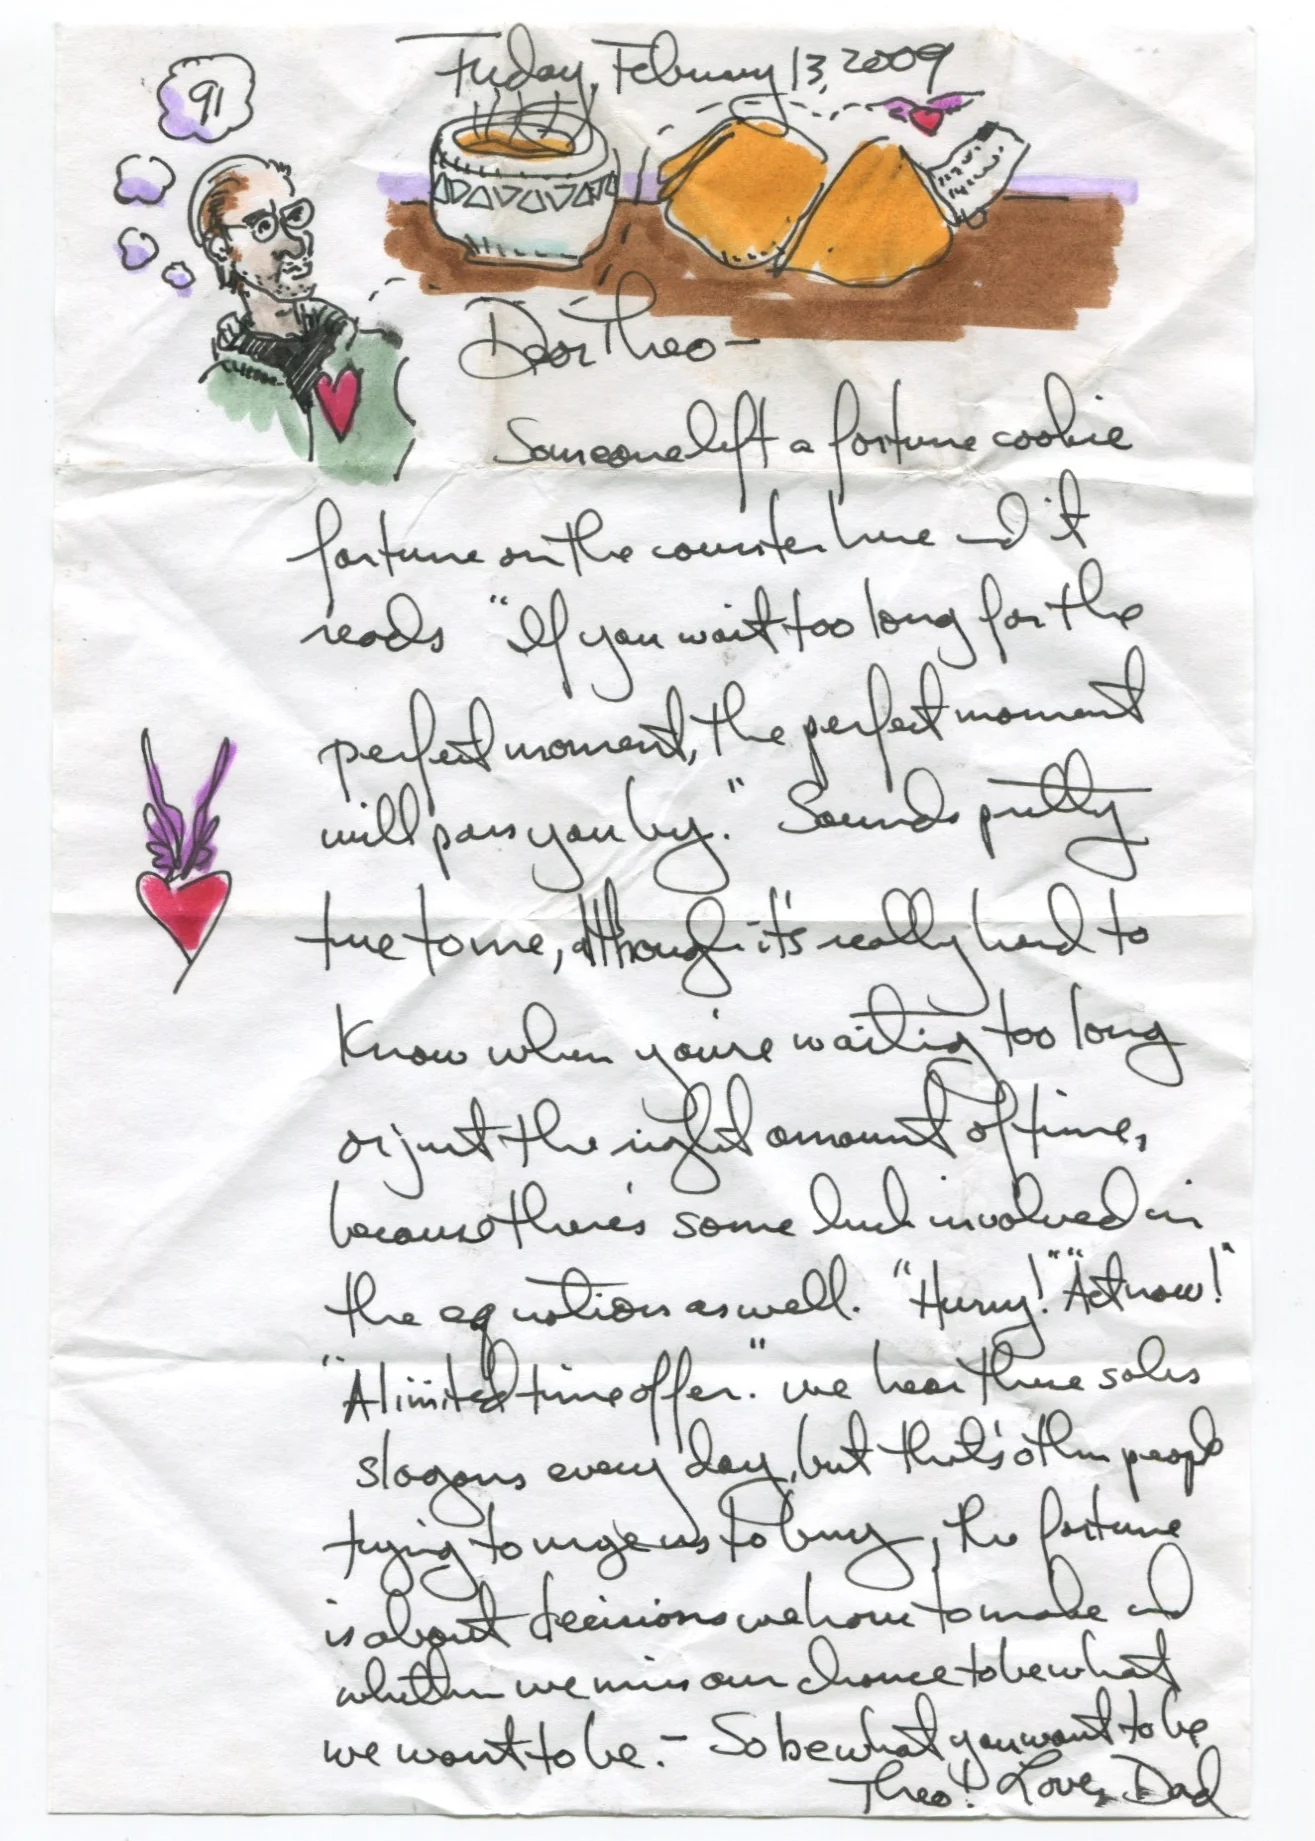 Friday, February 13, 2009
91
Dear Theo—
Someone left a fortune cookie
fortune on the counter here and it
reads "If you wait too long for the
perfect moment, the perfect moment
will pass you by." Sounds pretty
true to me, although it's really hard to
know when you're waiting too long
or just the right amount of time,
because there's some luck involved in
the equation as well. "Hurry!" "Act now!"
"A limited time offer." we hear these sales
slogans every day, but that's other people
trying to urge us to buy, the fortune
is about decisions we have to make and
whether we miss our chance to be what
we want to be.— So be what you want to be
Theo! Love, Dad